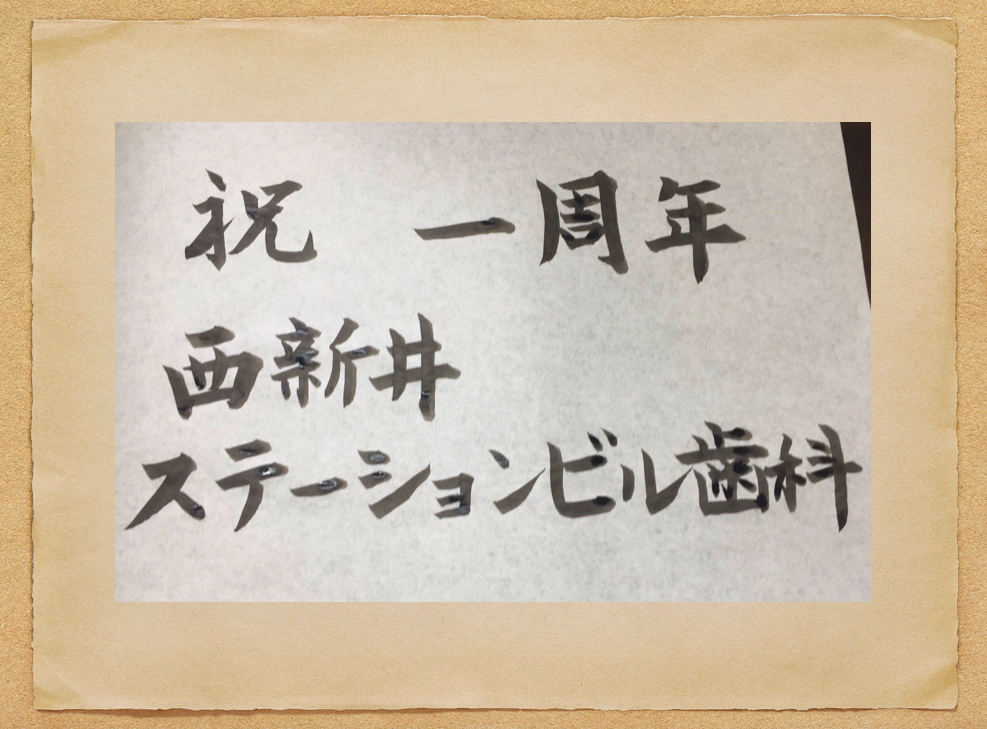 祝 一周年
西新井
ステーションビル歯科